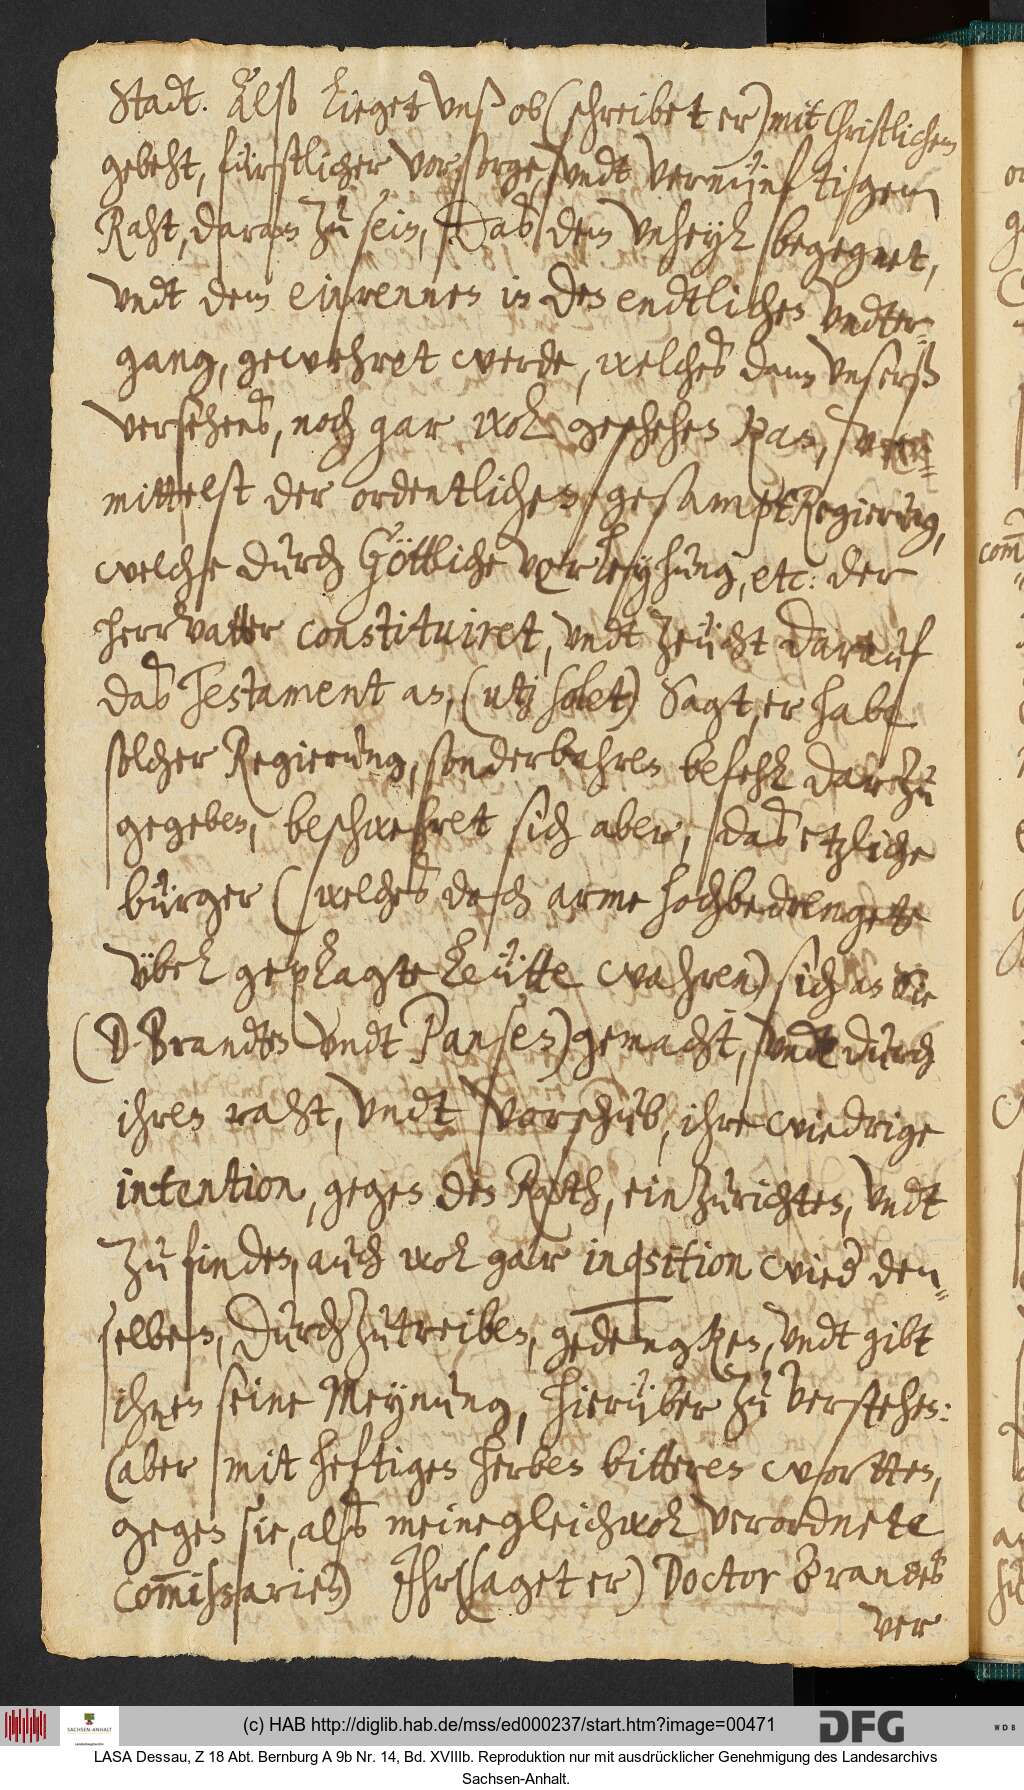 Stadt. Alß lieget Unß ob (schreibet er) mit Christlichem
gebeht, fürstlicher Vorsorge, Undt vernünftigem
Raht, daran Zu sein, Daß dem Unheyl begegnet,
Undt dem einrennen in den endtlichen Undter-
gang, gewehret werde, welches dann Unserß
versehens, noch gar wol geschehen kan, ver-
mittelst der ordentlichen gesampt Regierung,
welche durch Göttliche Verleyhung, etc: der
Herr vatter constituiret, Undt Zeücht darauf
das Testament an, (uti solet) Sagt, er habe
solcher Regierung, sonderbahren befehl darZu
gegeben, beschwehret sich aber, das etzliche
bürger (welches doch arme hochbedrengete
übel geplagte Leütte wahren) sich an Sie
(D. Brandten Undt Pansen) gemacht, Undt durch
ihren raht, Undt Vorschub, ihre wiedrige
intention, gegen den Rath, einZurichten, Undt
Zu finden, auch wol gar inqsition wied den-
selben, durchZutreiben, gedengken, Undt gibt
ihnen seine Meynung, hierüber Zu Verstehen:
(aber mit heftigen herben bitteren wortten,
gegen sie, alß meine gleichwol Verordnete
Comissarien) Ihr (saget er) Doctor Brandes
ver
(c) HAB http://diglib.hab.de/mss/ed000237/start.htm?image=00471
SACHSEN-ANHALT
DFG
WDB
LASA Dessau, Z 18 Abt. Bernburg A 9b Nr. 14, Bd. XVIIIb. Reproduktion nur mit ausdrücklicher Genehmigung des Landesarchivs
Sachsen-Anhalt.